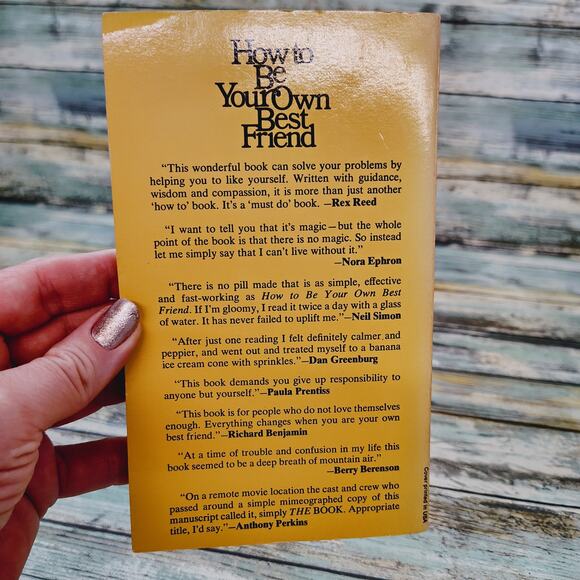 How to
Be
Your Own
Best
Friend
“This wonderful book can solve your problems by
helping you to like yourself. Written with guidance,
wisdom and compassion, it is more than just another
‘how to’ book. It's a ‘must do’ book. —Rex Reed
“I want to tell you that it's magic—but the whole
point of the book is that there is no magic. So instead
let me simply say that I can't live without it.”
—Nora Ephron
“There is no pill made that is as simple, effective
and fast-working as How to Be Your Own Best
Friend. If I'm gloomy, I read it twice a day with a glass
of water. It has never failed to uplift me.”—Neil Simon
“After just one reading I felt definitely calmer and
peppier, and went out and treated myself to a banana
ice cream cone with sprinkles.”—Dan Greenburg
“This book demands you give up responsibility to
anyone but yourself.”—Paula Prentiss
“This book is for people who do not love themselves
enough. Everything changes when you are your own
best friend.”—Richard Benjamin
“At a time of trouble and confusion in my life this
book seemed to be a deep breath of mountain air.”
—Berry Berenson
“On a remote movie location the cast and crew who
passed around a simple mimeographed copy of this
manuscript called it, simply THE BOOK. Appropriate
title, I'd say.”—Anthony Perkins
Cover printed in USA